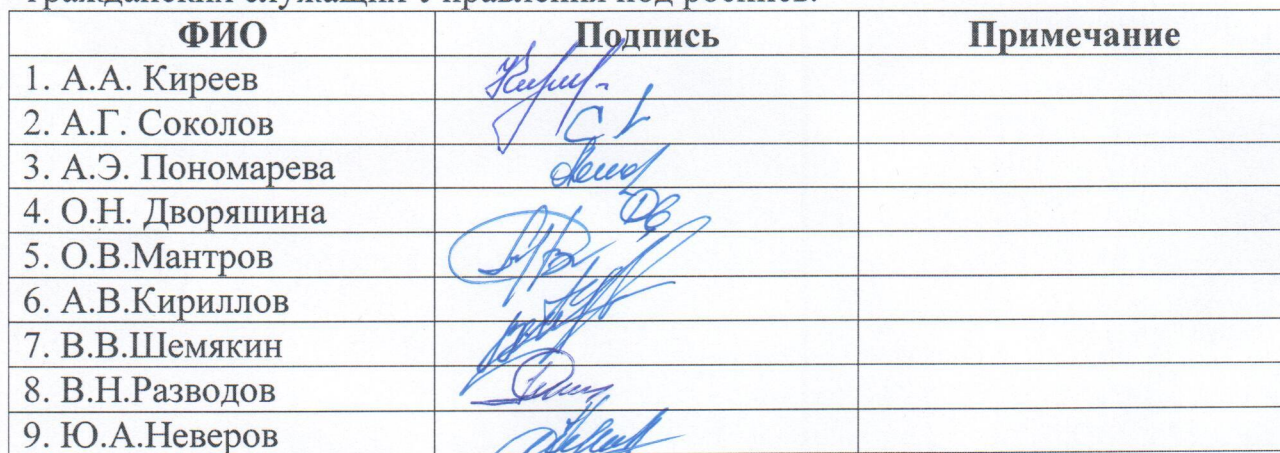 ФИО Подпись Примечание
1. А.А. Киреев
2. А.Г. Соколов
3. А.Э. Пономарева
4. О.Н. Дворяшина
5. О.В.Мантров
6. А.В.Кириллов
7. В.В.Шемякин
8. В.Н.Разводов
9. Ю.А.Неверов